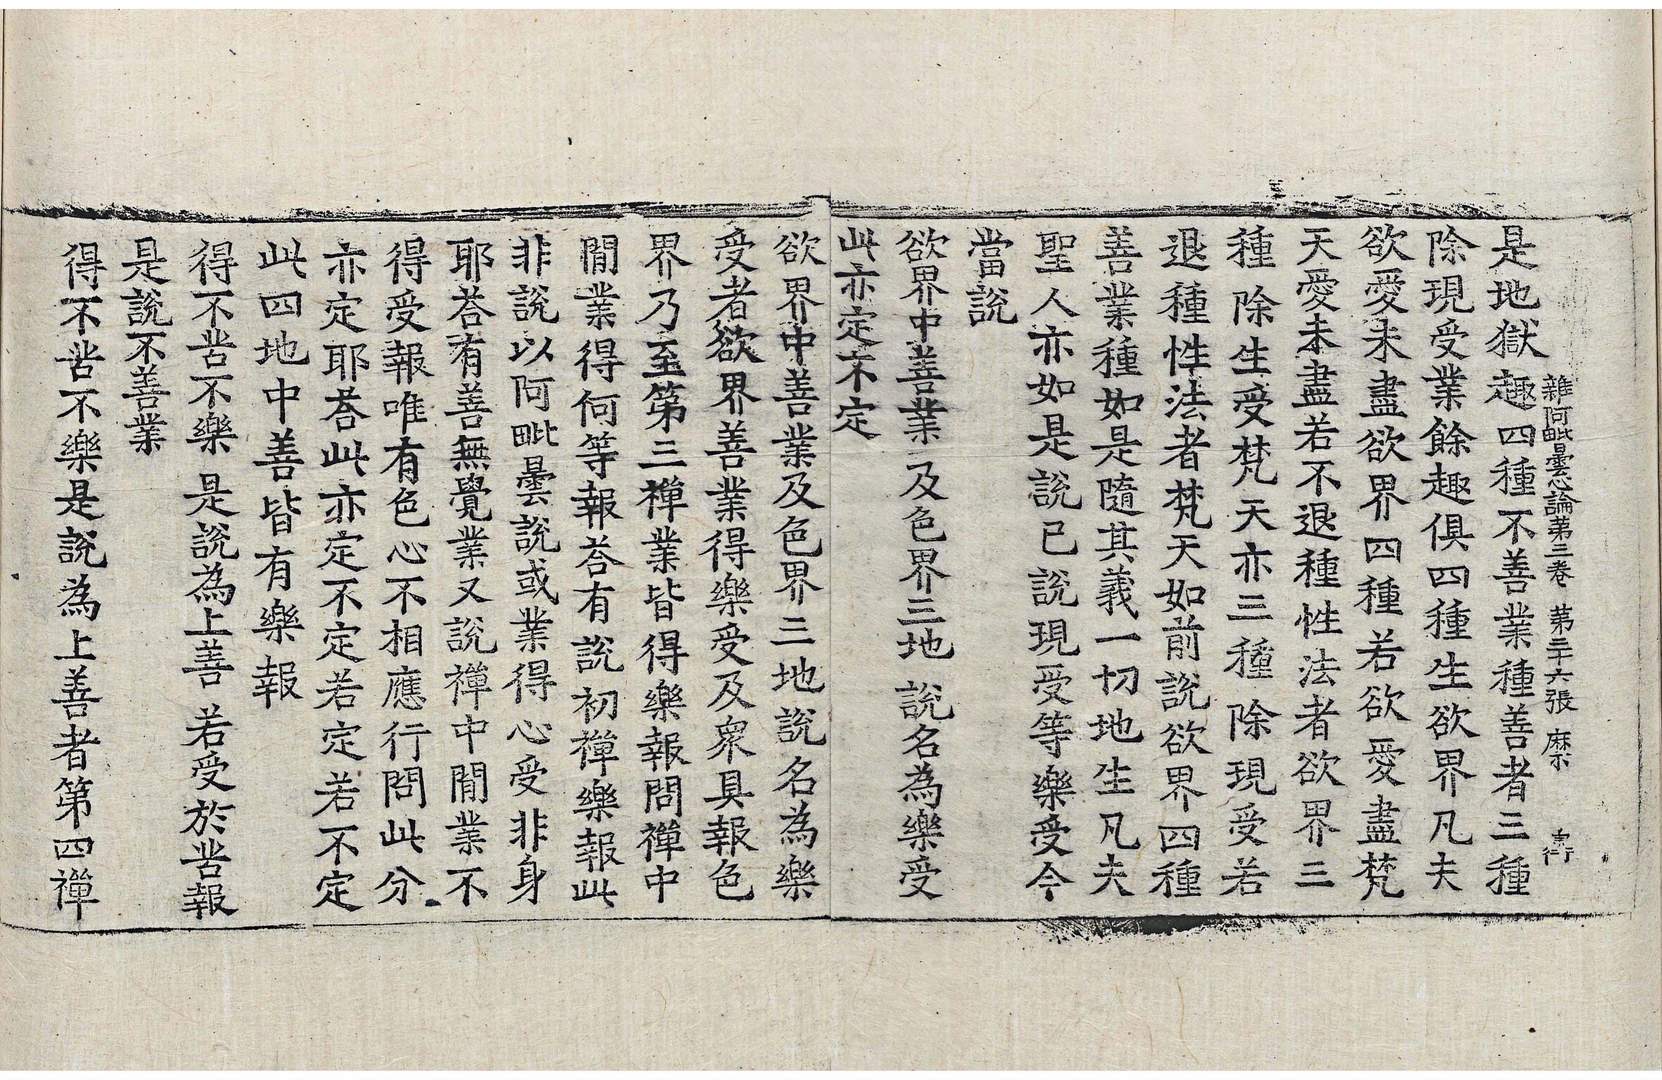 雜阿毗曇心論第三卷 第二十六張 縻
是地獄趣四種不善業種善者三種
除現受業餘趣俱四種生欲界凡夫
欲愛未盡欲界四種若欲愛盡梵
天愛未盡若不退種性法者欲界三
種除生受梵天亦三種除現受若
退種性法者梵天如前說欲界四種
善業種如是隨其義一切地生凡夫
聖人亦如是說已說現受等樂受今
當說
欲界中善業 及色界三地 說名為樂受
此亦定不定
欲界中善業及色界三地說名為樂
受者欲界善業得樂受及眾具報色
界乃至第三禪業皆得樂報問禪中
間業得何等報荅有說初禪樂報此
非說以阿毗曇說或業得心受非身
耶荅有善無覺業又說禪中間業不
得受報唯有色心不相應行問此分
亦定耶荅此亦定不定若定若不定
此四地中善皆有樂報
得不苦不樂 是說為上善 若受於苦報
是說不善業
得不苦不樂是說為上善者第四禪